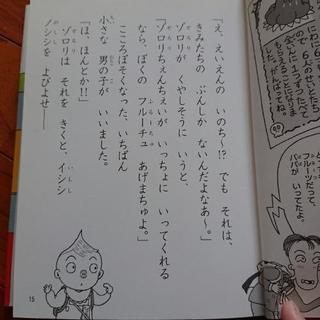 「え、えいえんの いのち〜!? でも それは、
きみたちの ぶんしか ないんだよなあ〜。」
ゾロリが くやしそうに いうと、
ゾロリ
「ゾロリちぇんちぇいが いっちょに いってくれる
なら、ぼくの フルーチュ あげまちゅよ。」
こころぼそくなった、いちばん
小さな 男の子が いいました。
「ほ、ほんとか!!」
ゾロリは それを きくと、イシシ
ノシシを よびよせ——
15
フルーツだって、
パパが いってたよ。